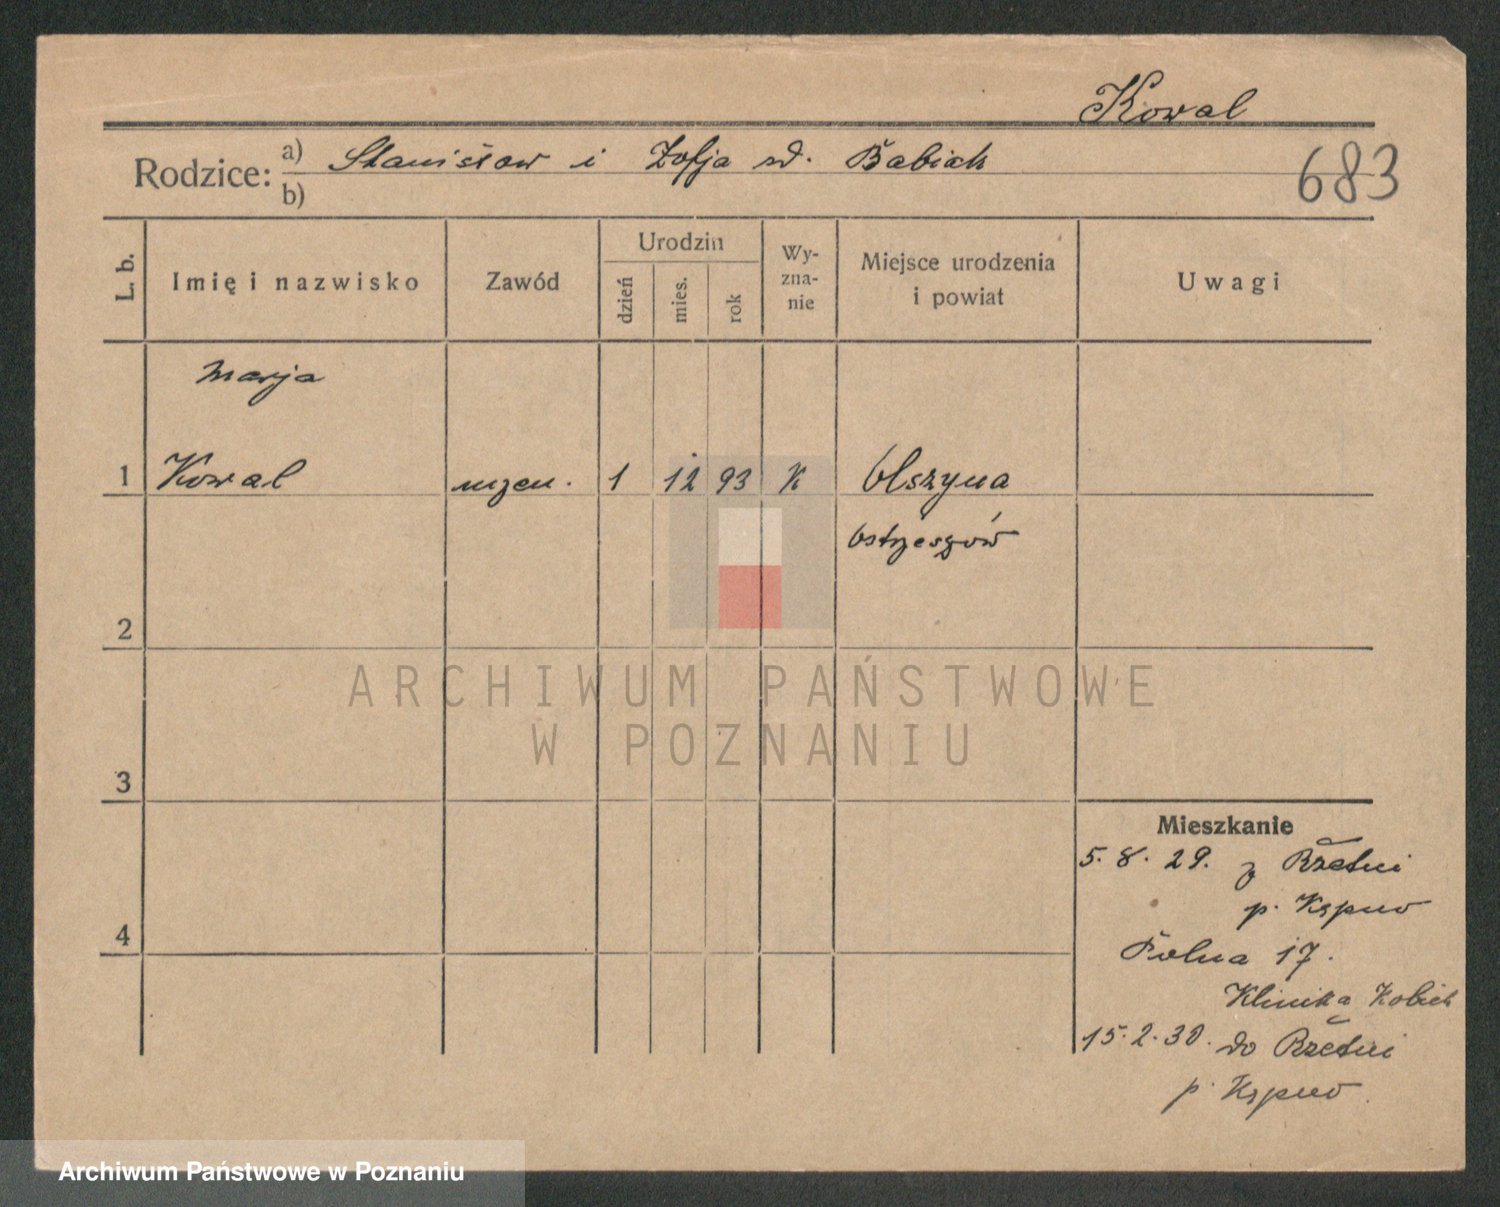 Kowal
Rodzice: a) Stanisław i Zofja zd. Babiak
b)
683
L. b. Imię i nazwisko Zawód Urodzin dzień mies. rok Wyznanie Miejsce urodzenia i powiat Uwagi
Marja
1 Kowal 1 12 93 K Olszyna
Ostrzeszów
2
ARCHIWUM PAŃSTWOWE
W POZNANIU
3
Mieszkanie
5.8.29. z Rzetni
p. Kępno
4
Polna 17.
Klinika Kobiet
15.2.30. do Rzetni
p. Kępno
Archiwum Państwowe w Poznaniu